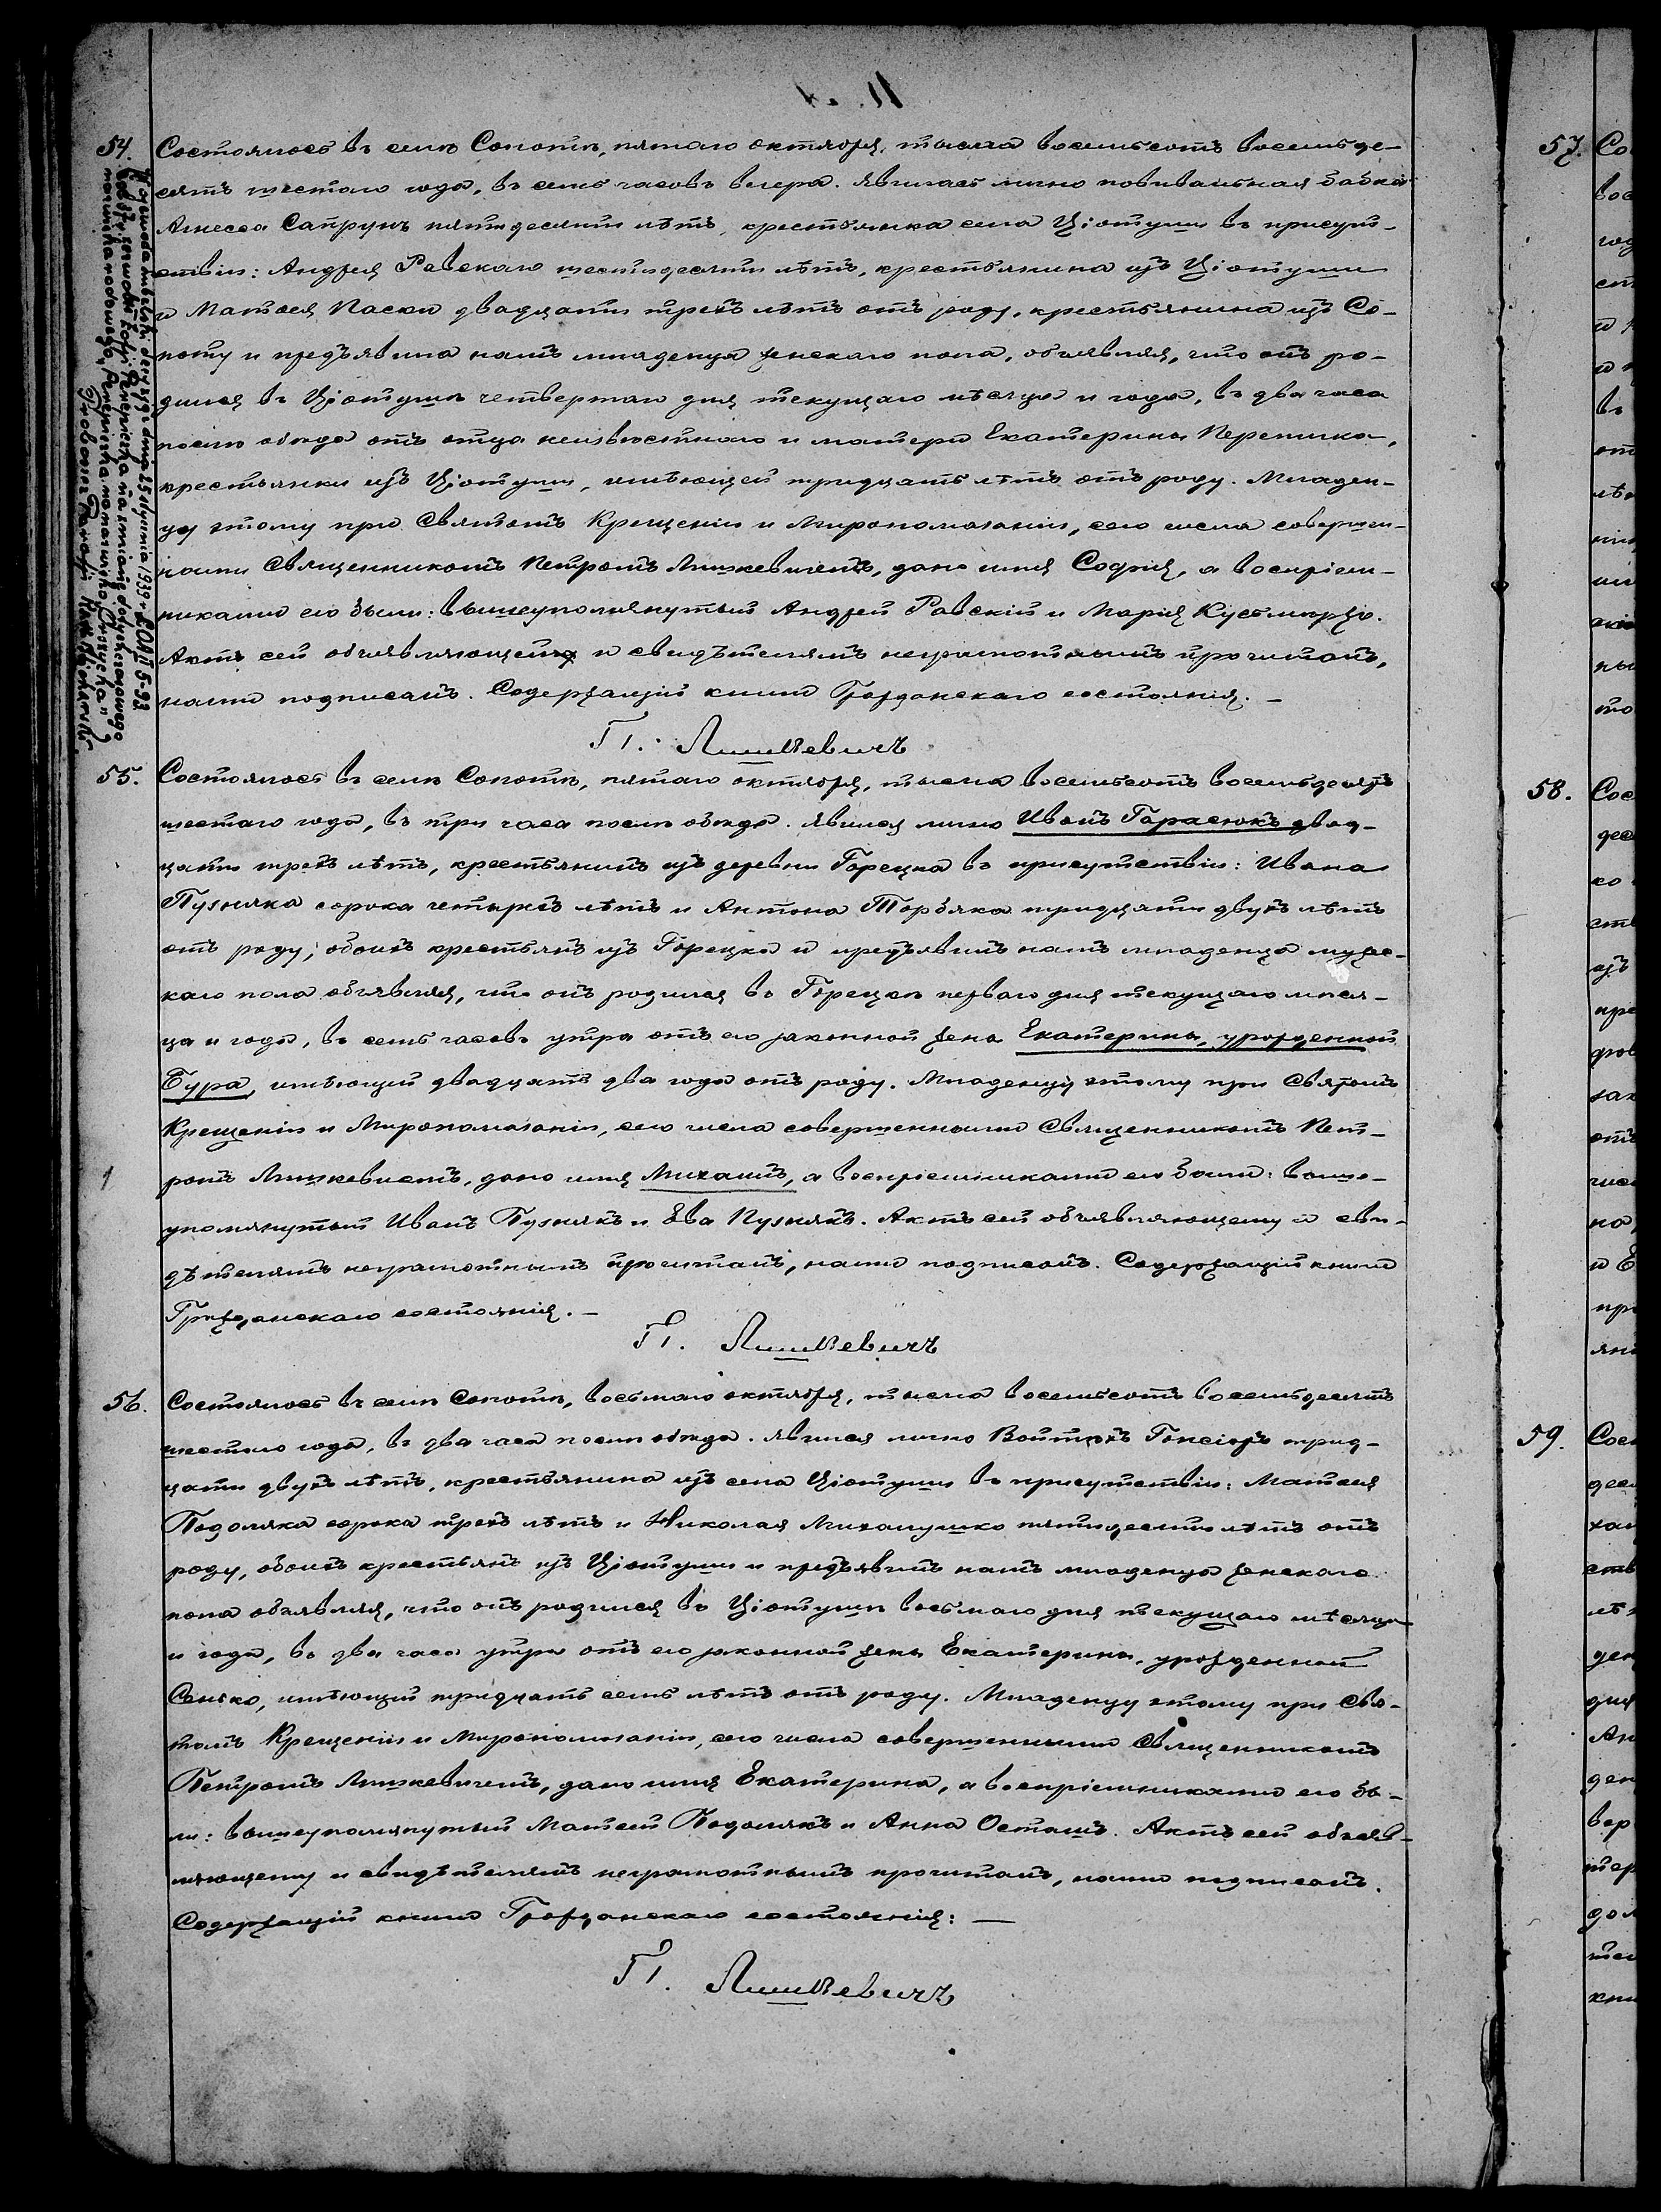 54.
Состоялось въ селѣ Сопотѣ, пятаго октября, тысяча восемьсотъ восемьде-
сятъ шестаго года, въ семь часовъ вечера. Явилась лично повивальная бабка
Агнесса Сапрунъ пятидесяти лѣтъ, крестьянка села Ціотуши въ присут-
ствіи: Андрея Равскаго шестидесяти лѣтъ, крестьянина изъ Ціотуши
и Матѳея Паски двадцати трехъ лѣтъ отъ роду, крестьянина изъ Со-
поту и предъявила намъ младенца женскаго пола, объявляя, что онъ ро-
дился въ Ціотушѣ четвертаго дня текущаго мѣсяца и года, въ два часа
послѣ обѣда отъ отца неизвѣстнаго и матери Екатерины
крестьянки изъ Ціотуши, имѣющей тридцать лѣтъ отъ роду. Младен-
цу этому при Святомъ Крещеніи и Миропомазаніи, сего числа совершен-
ными Священникомъ Петромъ Лишкевичемъ, дано имя Софія, а воспріем-
никами его были: вышеупомянутый Андрей Равскій и Марія
Актъ сей объявляющей и свидѣтелямъ неграмотнымъ прочитанъ,
нами подписанъ. Содержащій книги Гражданскаго состоянія. —
П. Лишкевичъ
55.
Состоялось въ селѣ Сопотѣ, пятаго октября, тысяча восемьсотъ восемьдесятъ
шестаго года, въ три часа послѣ обѣда. Явился лично Иванъ Гарасюкъ двад-
цати трехъ лѣтъ, крестьянинъ изъ деревни Горецка въ присутствіи: Ивана
Пузняка сорока четырехъ лѣтъ и Антона Торбяка тридцати двухъ лѣтъ
отъ роду, обоихъ крестьянъ изъ Горецка и предъявилъ намъ младенца мужес-
каго пола объявляя, что онъ родился въ Горецкѣ перваго дня текущаго мѣся-
ца и года, въ семь часовъ утра отъ его законной жены Екатерины, урожденной
Бура, имѣющей двадцать два года отъ роду. Младенцу этому при Святомъ
Крещеніи и Миропомазаніи, сего числа совершенными Священникомъ Пет-
ромъ Лишкевичемъ, дано имя Михаилъ, а воспріемниками его были: выше-
упомянутый Иванъ Пузнякъ и Ева Пузнякъ. Актъ сей объявляющему и сви-
дѣтелямъ неграмотнымъ прочитанъ, нами подписанъ. Содержащій книги
Гражданскаго состоянія. —
П. Лишкевичъ
56.
Состоялось въ селѣ Сопотѣ, восьмаго октября, тысяча восемьсотъ восемьдесятъ
шестаго года, въ два часа послѣ обѣда. Явился лично Войтѣхъ Гонсіоръ трид-
цати двухъ лѣтъ, крестьянина изъ села Ціотуши въ присутствіи: Матѳея
Подоляка сорока трехъ лѣтъ и Николая Михалушко пятидесяти лѣтъ отъ
роду, обоихъ крестьянъ изъ Ціотуши и предъявилъ намъ младенца женскаго
пола объявляя, что онъ родился въ Ціотушѣ восьмаго дня текущаго мѣсяца
и года, въ два часа утра отъ его законной жены Екатерины, урожденной
Сенько, имѣющей тридцать семь лѣтъ отъ роду. Младенцу этому при Свя-
томъ Крещеніи и Миропомазаніи, сего числа совершенными Священникомъ
Петромъ Лишкевичемъ, дано имя Екатерина, а воспріемниками его бы-
ли: вышеупомянутый Матѳей Подолякъ и Анна Осташъ. Актъ сей объяв-
ляющему и свидѣтелямъ неграмотнымъ прочитанъ, нами подписанъ.
Содержащій книги Гражданскаго состоянія: —
П. Лишкевичъ
57.
58.
59.